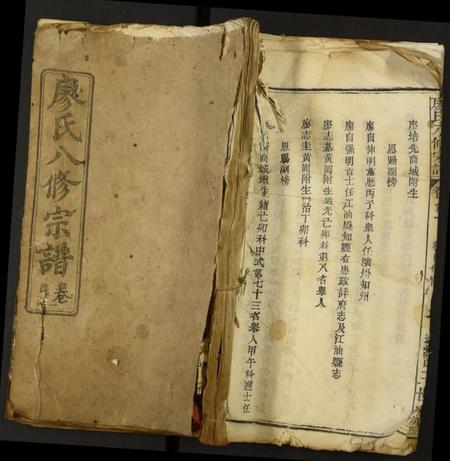 廖氏八修宗譜
卷
廖氏八修宗譜
廖培先商城附生
恩賜副榜
廖自伸明萬歷丙子科舉人任濱州知州
廖自強明貢士任江油縣知縣有惠政詳府志及江油縣志
廖志基黃岡附生道光己卯科第八名舉人
廖志圭黃岡附生同治丁卯科
恩賜副榜
商城增生
己卯科中式第七十三名舉人甲午科進士任